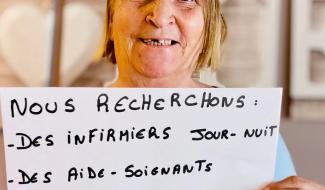 NOUS RECHERCHONS :
- DES INFIRMIERS JOUR-NUIT
- DES AIDE-SOIGNANTS